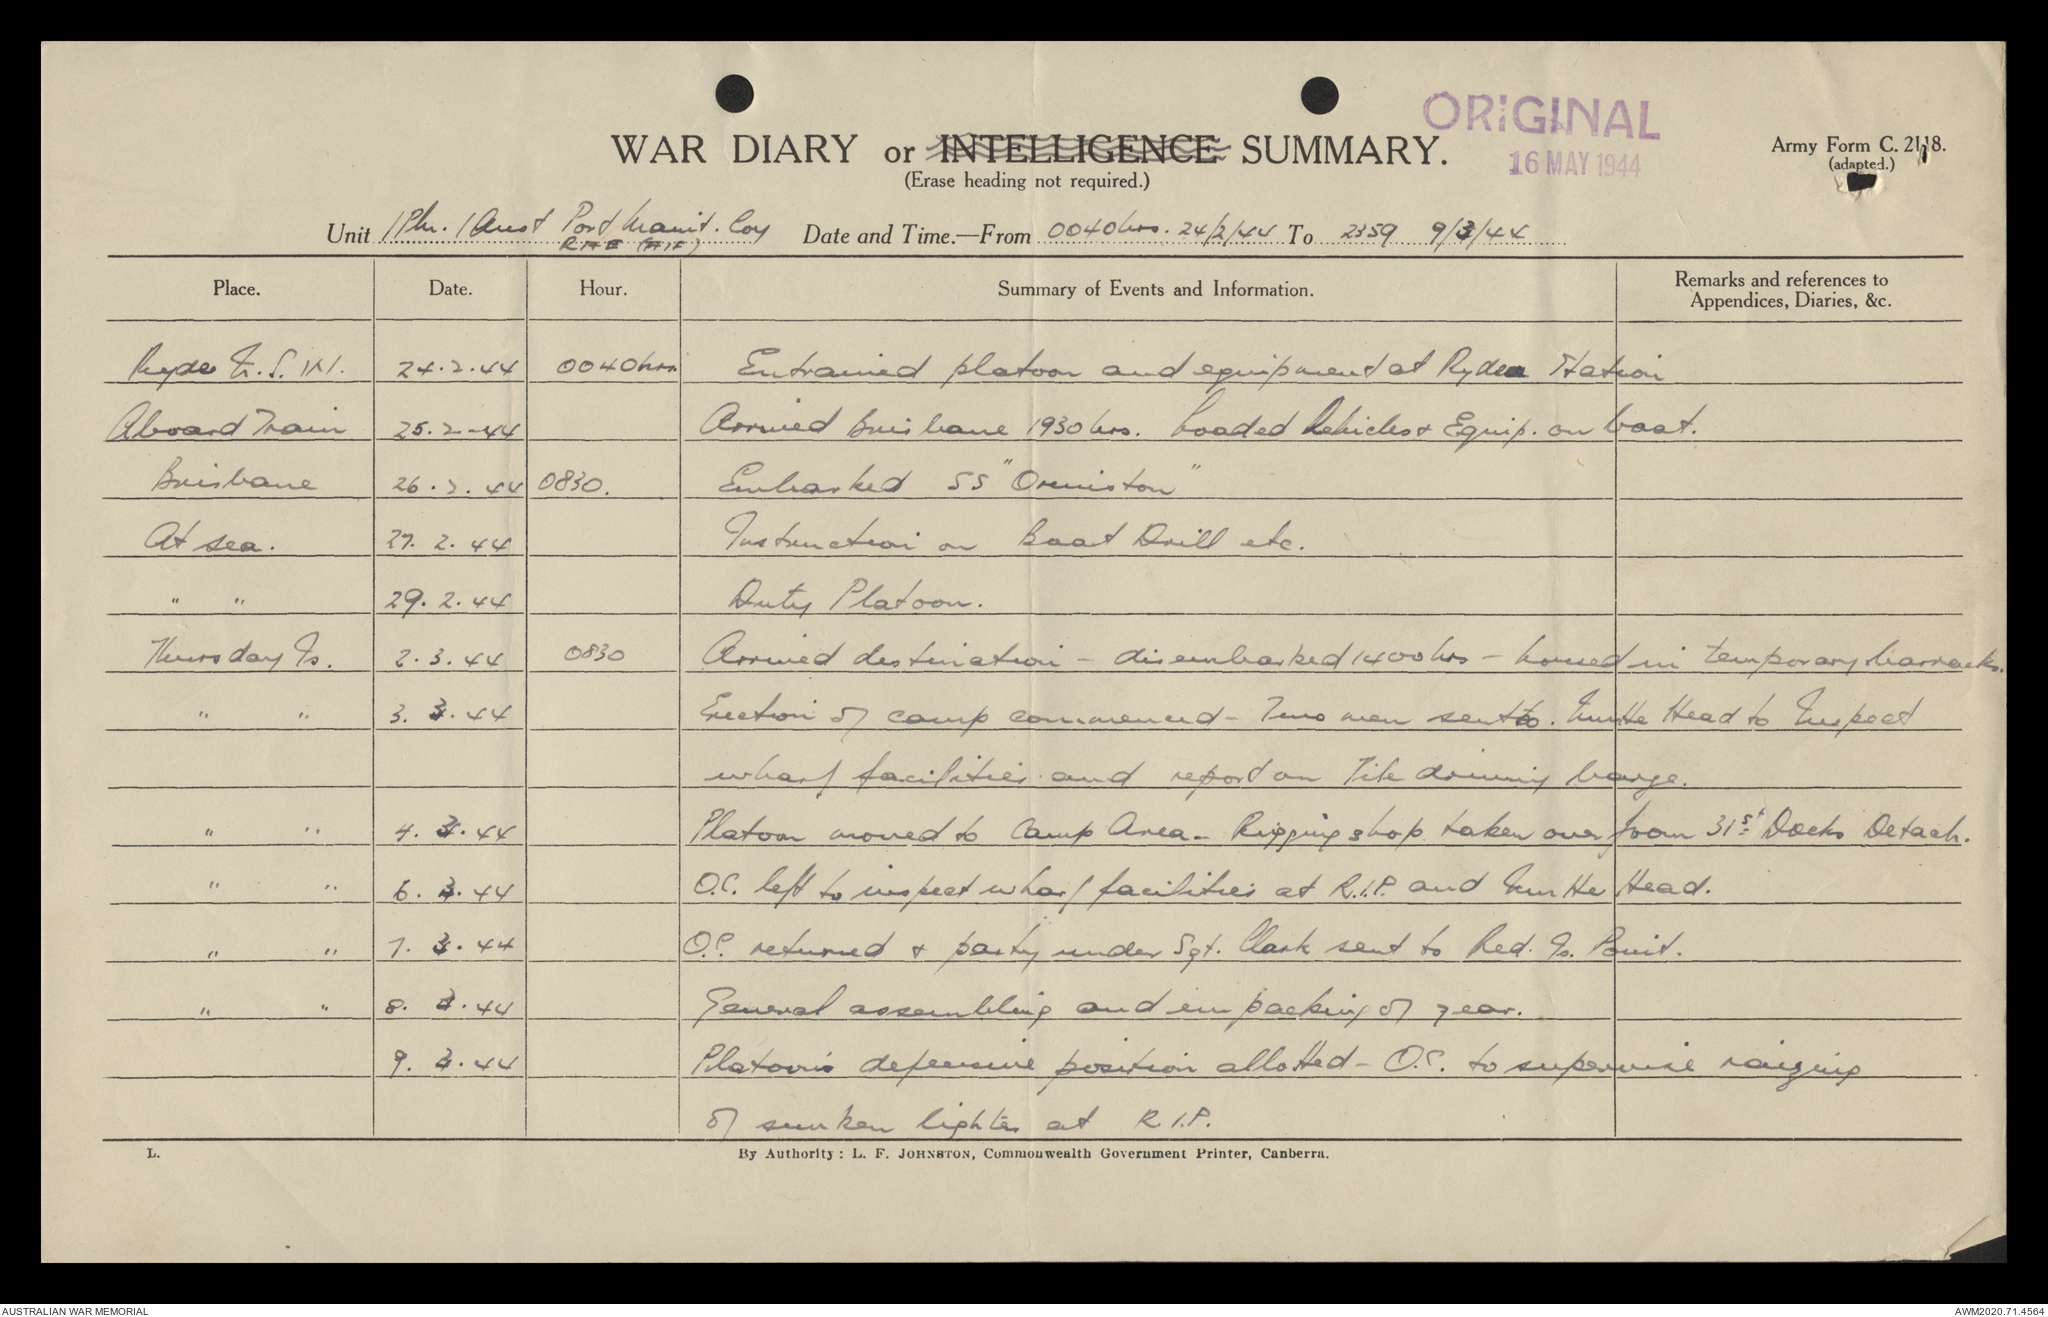 ORIGINAL
16 MAY 1944
WAR DIARY or INTELLIGENCE SUMMARY.
(Erase heading not required.)
Army Form C. 2118.
(adapted.)
Unit 1 Pln. 1 Aust Port Maint. Coy Date and Time.—From 0040 hrs. 24/2/44 To 2359 9/3/44
RAE (AIF)
Place. Date. Hour. Summary of Events and Information. Remarks and references to Appendices, Diaries, &c.
Ryde N.S.W. 24.2.44 0040 hrs Entrained platoon and equipment at Ryde Station
Aboard Train 25.2-44 Arrived Brisbane 1930 hrs. Loaded Vehicles & Equip. on boat.
Brisbane 26.2.44 0830. Embarked SS "Ormiston"
At sea. 27.2.44 Instruction on Boat Drill etc.
" " 29.2.44 Duty Platoon.
Thursday Is. 2.3.44 0830 Arrived destination - disembarked 1400 hrs - housed in temporary barracks.
" " 3.3.44 Erection of camp commenced - Two men sent to Turtle Head to Inspect
wharf facilities and report on Pile driving barge.
" " 4.3.44 Platoon moved to Camp Area - Rigging shop taken over from 31st Docks Detach.
" " 6.3.44 O.C. left to inspect wharf facilities at R.I.P. and Turtle Head.
" " 7.3.44 O.C. returned & party under Sgt. Clark sent to Red. Is. Point.
" " 8.3.44 General assembling and unpacking of gear.
9.3.44 Platoon's defensive position allotted - O.C. to supervise raizing
of sunken lighter at R.I.P.
L. By Authority: L. F. JOHNSTON, Commonwealth Government Printer, Canberra.
AUSTRALIAN WAR MEMORIAL AWM2020.71.4564